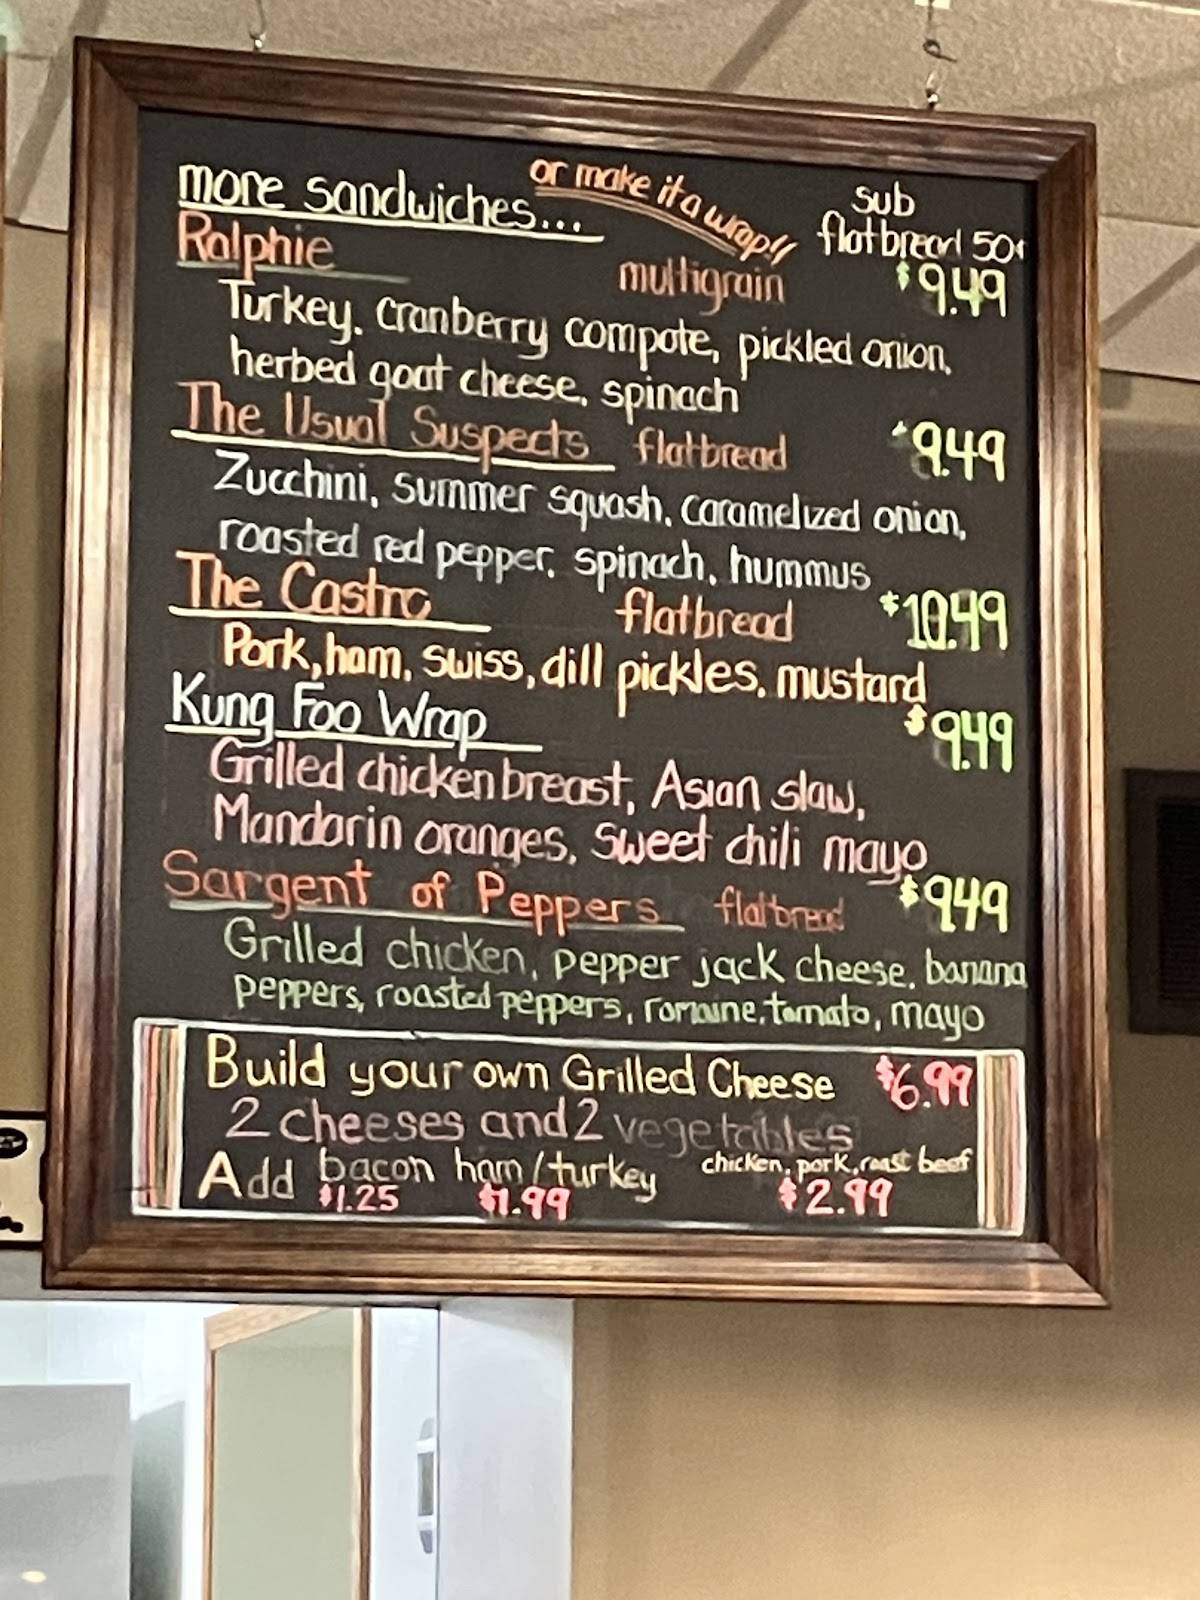 more sandwiches... or make it a wrap!! sub
flatbread 50¢
Ralphie multigrain $9.49
Turkey, cranberry compote, pickled onion,
herbed goat cheese, spinach
The Usual Suspects flatbread $9.49
Zucchini, summer squash, caramelized onion,
roasted red pepper, spinach, hummus
The Castro flatbread $10.49
Pork, ham, swiss, dill pickles, mustard
Kung Foo Wrap $9.49
Grilled chicken breast, Asian slaw,
Mandarin oranges, sweet chili mayo
Sargent of Peppers flatbread $9.49
Grilled chicken, pepper jack cheese, banana
peppers, roasted peppers, romaine, tomato, mayo
Build your own Grilled Cheese $6.99
2 cheeses and 2 vegetables
Add bacon ham/turkey chicken, pork, roast beef
$1.25 $1.99 $2.99